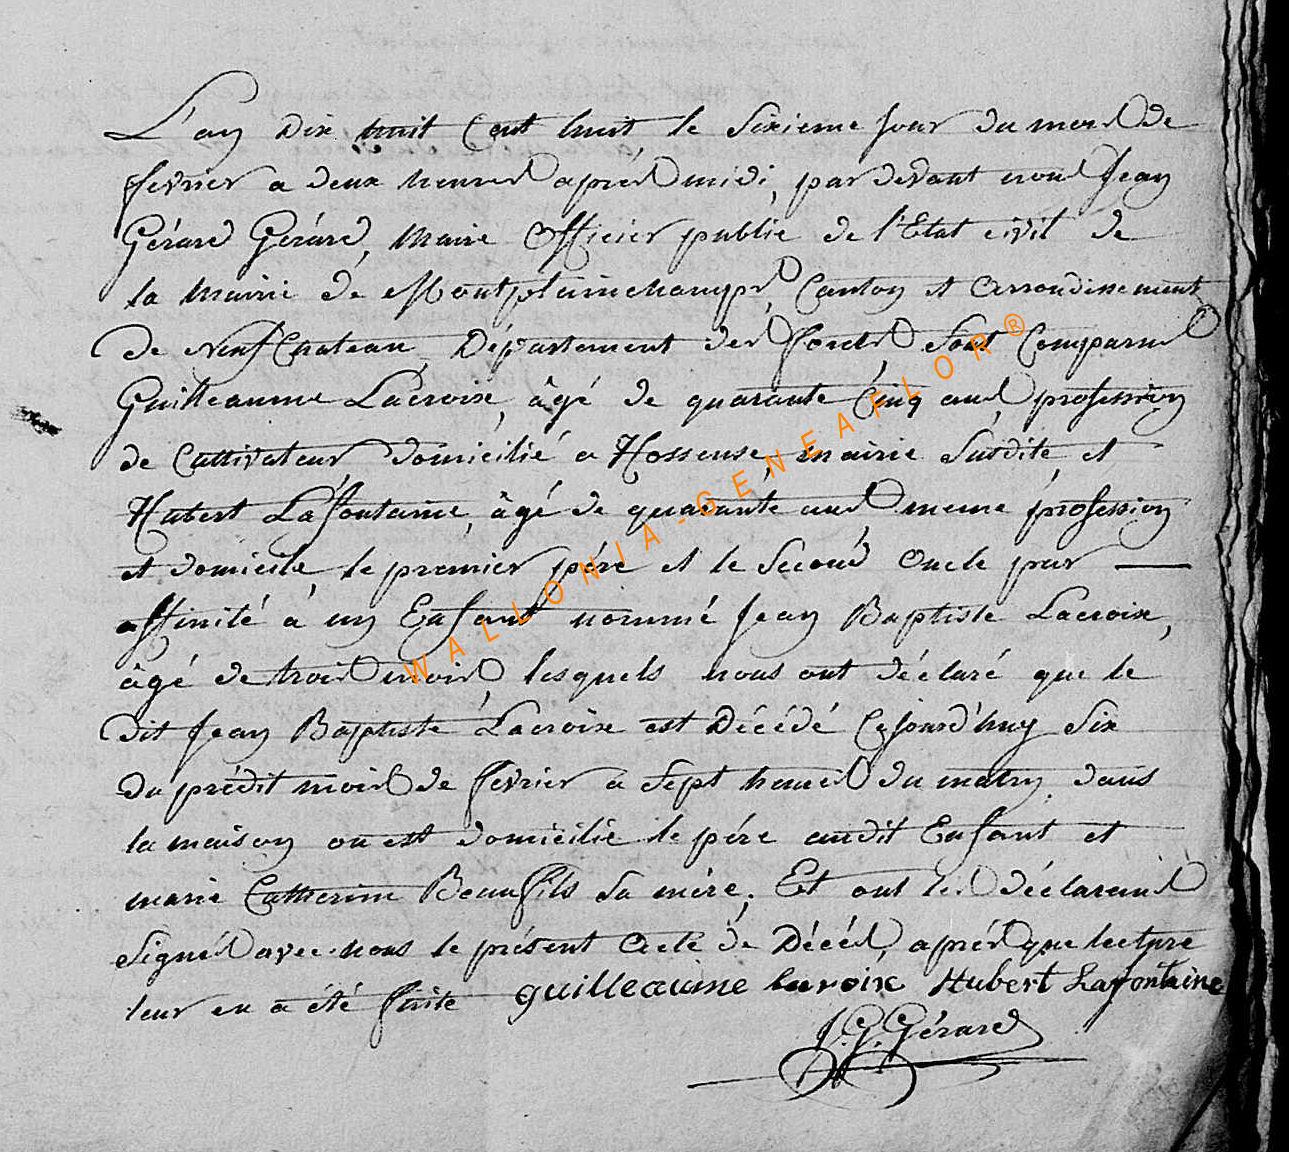 L'an dix huit Cent huit le Sixieme Jour du mois de
fevrier a deux heures après midi, par devant nous Jean
Gérard Gérard, Maire Officier publie de l'Etat civil de
la Mairie de Montplainchamps, Canton et Arrondissement
de Neufchateau, Département des forets, Sont Comparus
Guilleaume Lacroix, âgé de quarante Cinq ans, profession
de Cultivateur domicilié a Hosseuse, mairie Susdite, et
Hubert Lafontaine, âgé de quarante ans, meme profession
et domicile, le premier pére et le Second Oncle par
affinité à un Enfant nommé Jean Baptiste Lacroix,
âgé de trois mois, lesquels nous ont déclaré que le
dit Jean Baptiste Lacroix est Décédé Cejourd'huy Six
du prédit mois de fevrier a Sept heures du matin, dans
la maison ou est domicilié le pére audit Enfant et
marie Catherine Beaufils Sa mère. Et ont les déclarants
Signés avec nous le présent Acte de Décés, aprés que lecture
leur en a été faite guilleaume lacroix Hubert Lafontaine
J. G. Gérard
WALLONIA-GENEAFLOR®